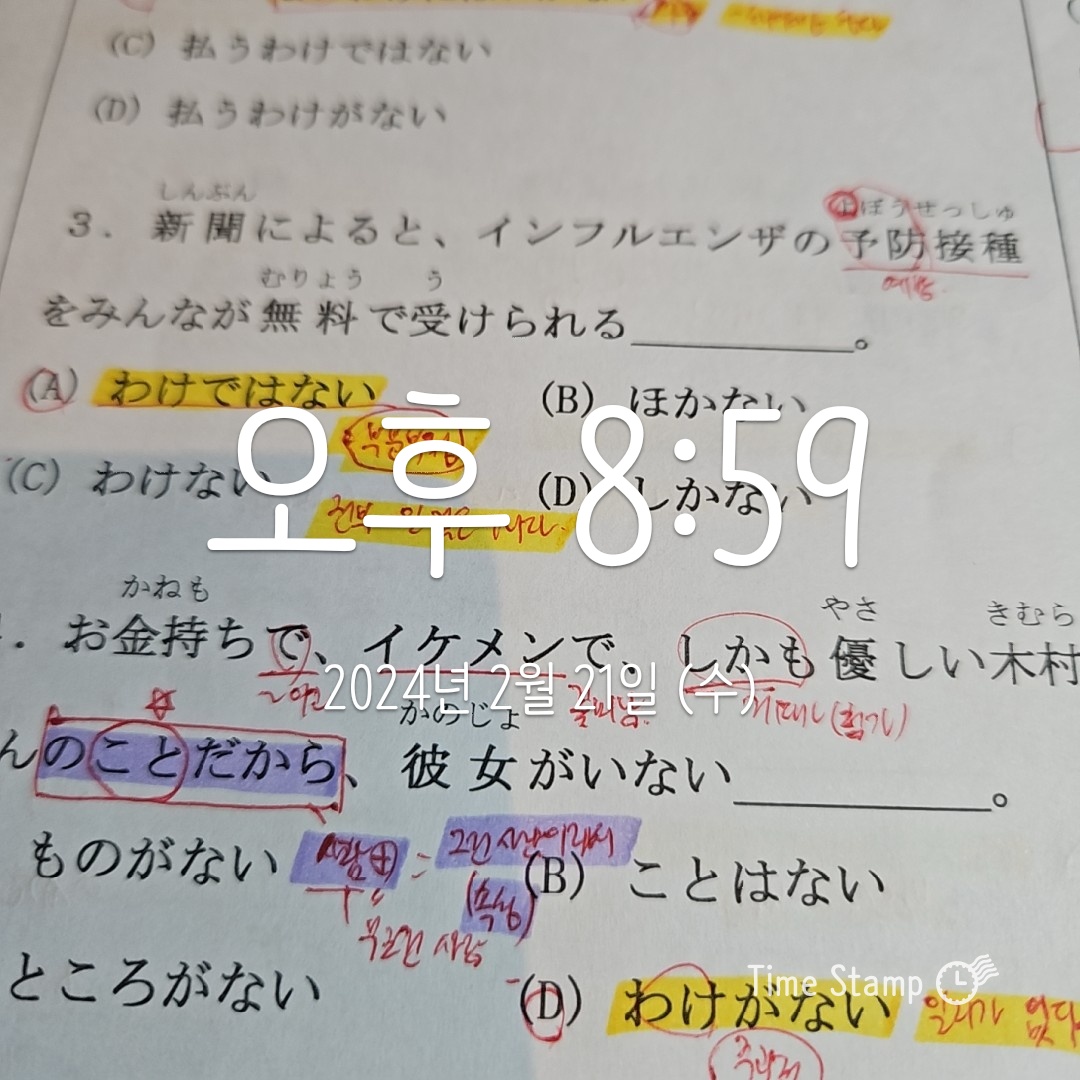 (C) 払うわけではない
(D) 払うわけがない
しんぶん
よぼうせっしゅ
3. 新聞によると、インフルエンザの予防接種
예방.
むりょう う
をみんなが無料で受けられる________。
(A) わけではない (B) ほかない
부분부정
(C) わけない (D) しかない
전부
오후 8:59
かねも やさ きむら
. お金持ちで、イケメンで、しかも優しい木村
2024년 2월 21일 (수)
(첨가)
かのじょ
んのことだから、彼女がいない________。
ものがない (B) ことはない
사람田 = 그런 사람이라서
(속성)
무조건 사람
ところがない (D) わけがない
일리가 없다
Time Stamp